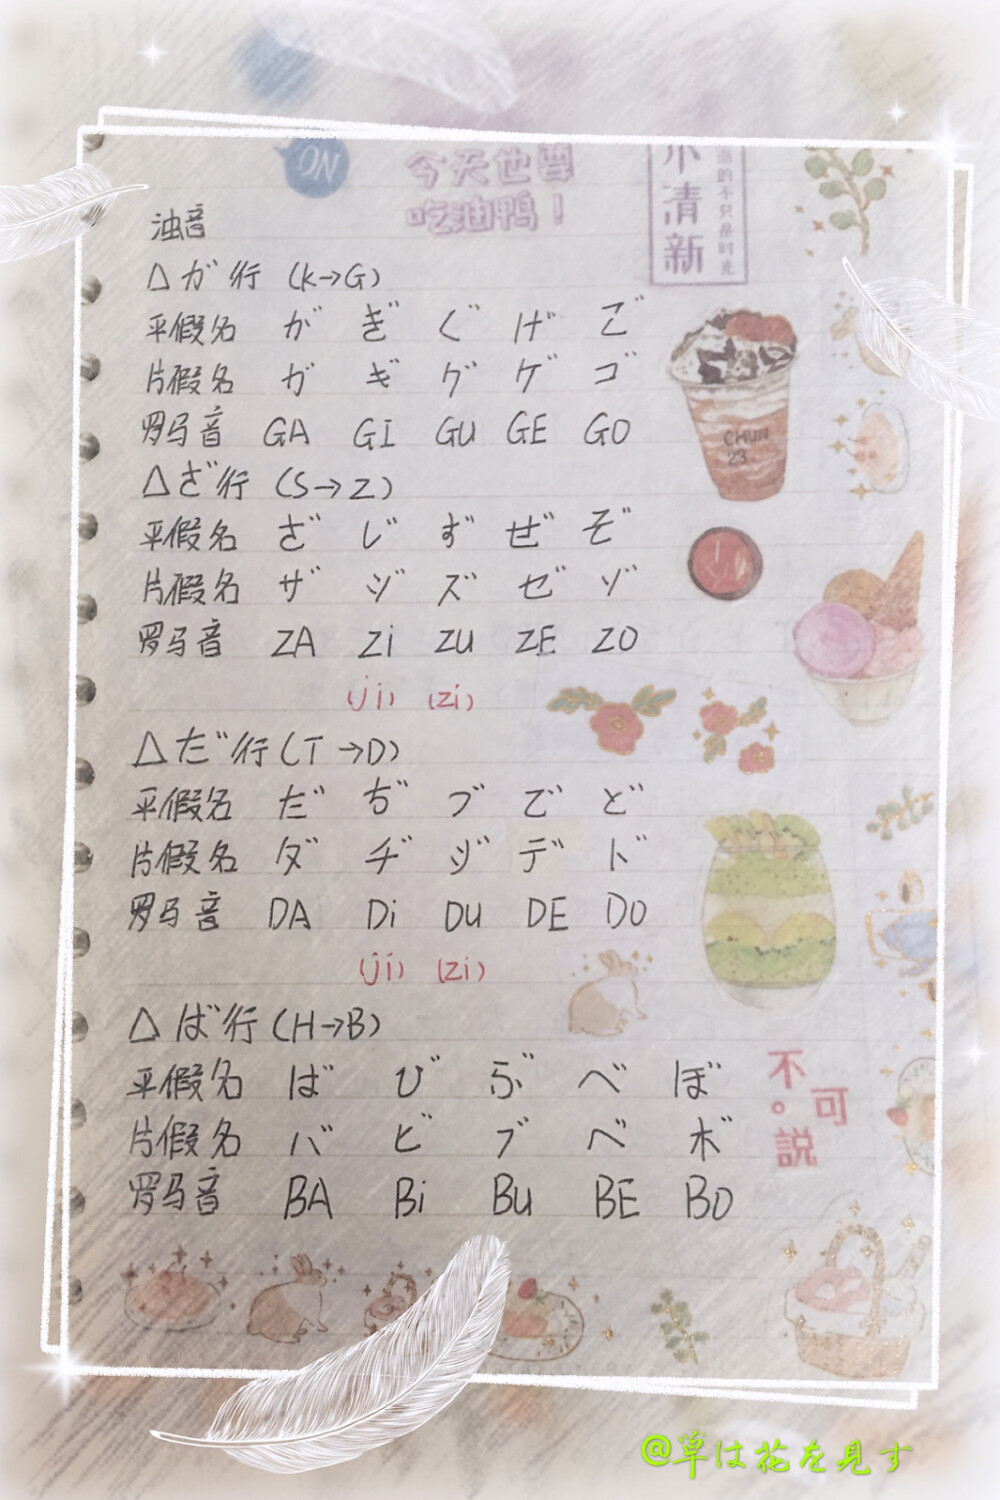 ON
今天也要
吃油鸭！
小清新
浊音
△が行 (K→G)
平假名 が ぎ ぐ げ ご
片假名 ガ ギ グ ゲ ゴ
罗马音 GA GI GU GE GO
CHUN
23
△ざ行 (S→Z)
平假名 ざ じ ず ぜ ぞ
片假名 ザ ジ ズ ゼ ゾ
罗马音 ZA Zi ZU ZE ZO
(ji) (zi)
△だ行 (T→D)
平假名 だ ぢ づ で ど
片假名 ダ ヂ ジ デ ド
罗马音 DA Di DU DE DO
(ji) (zi)
△ば行 (H→B)
平假名 ば び ぶ べ ぼ
片假名 バ ビ ブ ベ ボ
罗马音 BA Bi BU BE BO
不可
説
@单は花を見す